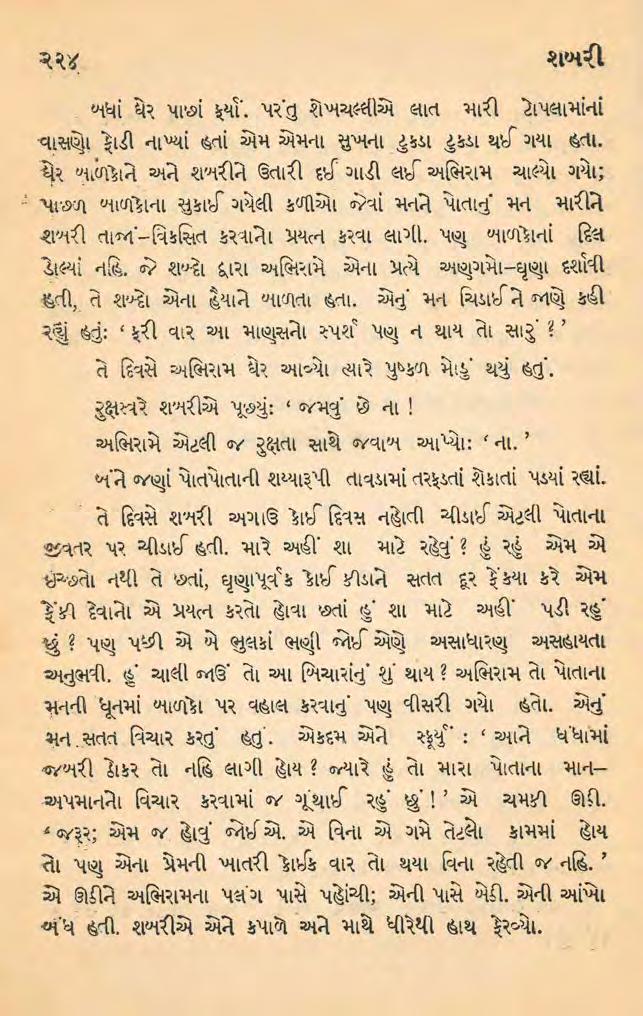 ૨૨૪ શબરી
બધાં ઘેર પાછાં ફર્યાં. પરંતુ શેખચલ્લીએ લાત મારી ટોપલામાંનાં
વાસણો ફોડી નાખ્યાં હતાં એમ એમના સુખના ટુકડા ટુકડા થઈ ગયા હતા.
ઘેર બાળકોને અને શબરીને ઉતારી દઈ ગાડી લઈ અભિરામ ચાલ્યો ગયો;
પાછળ બાળકોના સુકાઈ ગયેલી કળીઓ જેવાં મનને પોતાનું મન મારીને
શબરી તાજાં–વિકસિત કરવાનો પ્રયત્ન કરવા લાગી. પણ બાળકોનાં દિલ
ડોલ્યાં નહિ. જે શબ્દો દ્વારા અભિરામે એના પ્રત્યે અણગમો–ઘૃણા દર્શાવી
હતી, તે શબ્દો એના હૈયાને બાળતા હતા. એનું મન ચિડાઈને જાણે કહી
રહ્યું હતું: ‘ ફરી વાર આ માણસનો સ્પર્શ પણ ન થાય તો સારું ? ’
તે દિવસે અભિરામ ઘેર આવ્યો ત્યારે પુષ્કળ મોડું થયું હતું.
રુક્ષસ્વરે શબરીએ પૂછ્યું: ‘ જમવું છે ના !
અભિરામે એટલી જ રુક્ષતા સાથે જવાબ આપ્યો: ‘ ના. ’
બંને જણાં પોતપોતાની શય્યારૂપી તાવડામાં તરફડતાં શેકાતાં પડયાં રહ્યાં.
તે દિવસે શબરી અગાઉ કોઈ દિવસ નહોતી ચીડાઈ એટલી પોતાના
જીવતર પર ચીડાઈ હતી. મારે અહીં શા માટે રહેવું ? હું રહું એમ એ
ઇચ્છતો નથી તે છતાં, ઘૃણાપૂર્વક કોઈ કીડાને સતત દૂર ફેંકયા કરે એમ
ફેંકી દેવાનો એ પ્રયત્ન કરતો હોવા છતાં હું શા માટે અહીં પડી રહું
છું ? પણ પછી એ બે ભુલકાં ભણી જોઈ એણે અસાધારણ અસહાયતા
અનુભવી. હું ચાલી જાઉં તો આ બિચારાંનું શું થાય ? અભિરામ તો પોતાના
મનની ધૂનમાં બાળકો પર વહાલ કરવાનું પણ વીસરી ગયો હતો. એનું
મન સતત વિચાર કરતું હતું. એકદમ એને સ્ફૂર્યું : ‘ આને ધંધામાં
જબરી ઠોકર તો નહિ લાગી હોય ? જ્યારે હું તો મારા પોતાના માન–
અપમાનનો વિચાર કરવામાં જ ગૂંથાઈ રહું છું ! ’ એ ચમકી ઊઠી.
‘ જરૂર; એમ જ હોવું જોઈએ. એ વિના એ ગમે તેટલો કામમાં હોય
તો પણ એના પ્રેમની ખાતરી કોઈક વાર તો થયા વિના રહેતી જ નહિ. ’
એ ઊઠીને અભિરામના પલંગ પાસે પહોંચી; એની પાસે બેઠી. એની આંખો
બંધ હતી. શબરીએ એને કપાળે અને માથે ધીરેથી હાથ ફેરવ્યો.